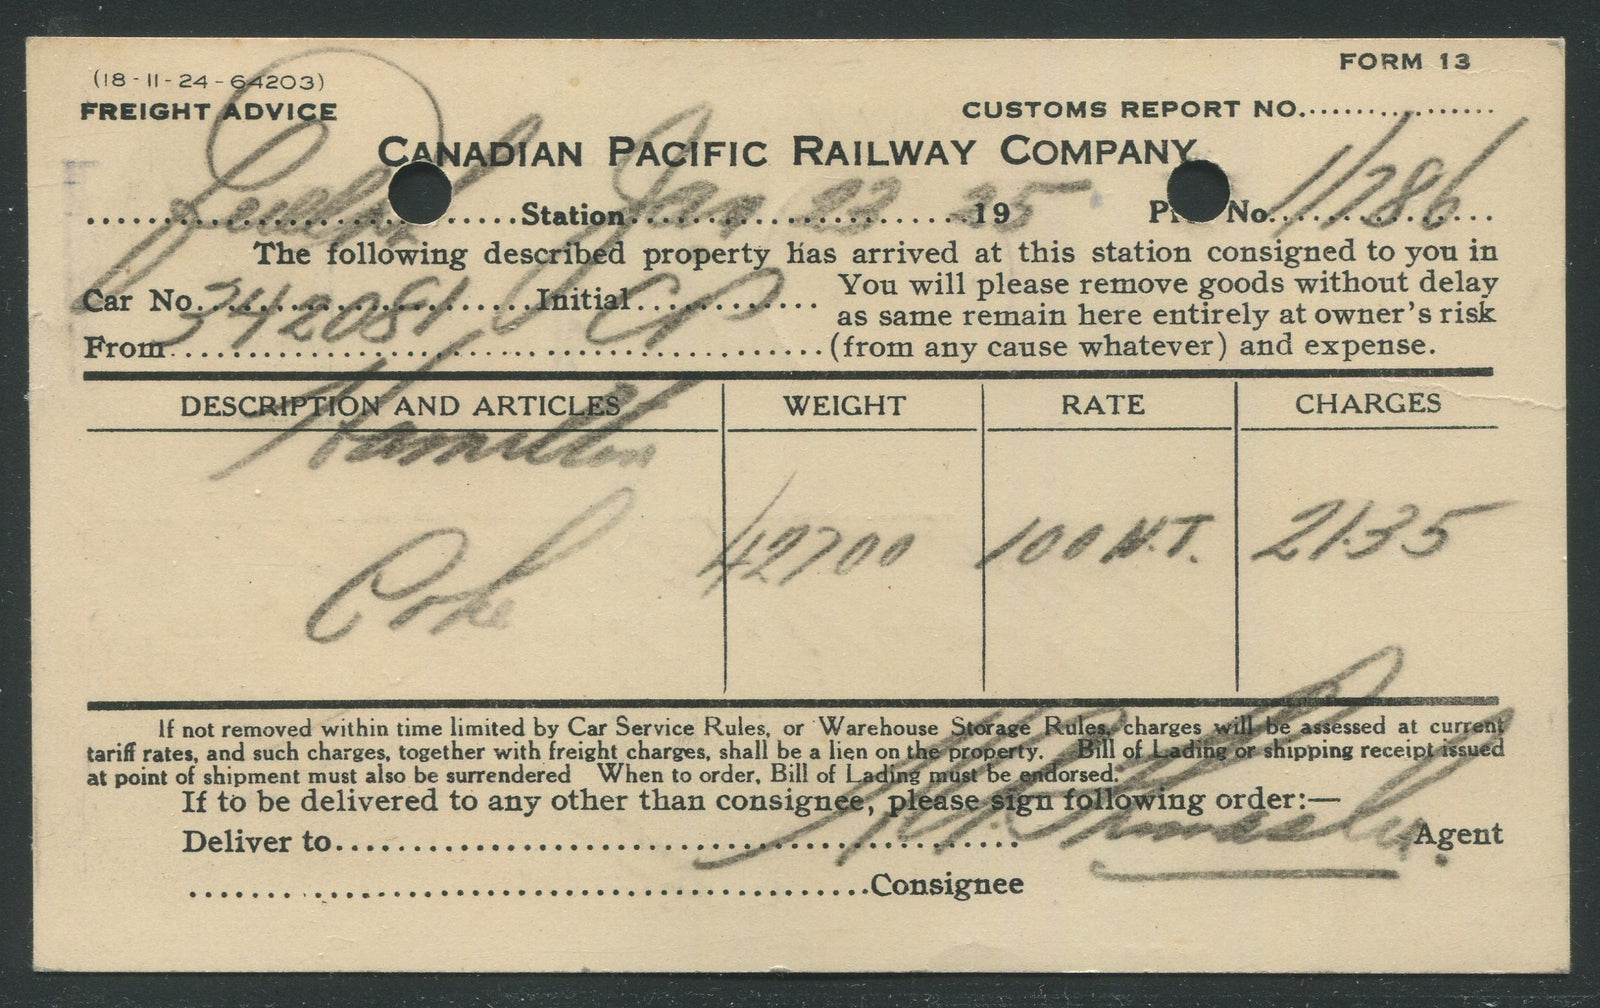 (18-11-24-64203)
FORM 13
FREIGHT ADVICE
CUSTOMS REPORT NO..................
CANADIAN PACIFIC RAILWAY COMPANY
Guelph Station Jan 23 1925 P No. 11786
The following described property has arrived at this station consigned to you in
Car No. 342081 Initial CP
You will please remove goods without delay
as same remain here entirely at owner's risk
From Hamilton
(from any cause whatever) and expense.
DESCRIPTION AND ARTICLES WEIGHT RATE CHARGES
Coke 42700 100 N.T. 21.35
If not removed within time limited by Car Service Rules, or Warehouse Storage Rules, charges will be assessed at current
tariff rates, and such charges, together with freight charges, shall be a lien on the property. Bill of Lading or shipping receipt issued
at point of shipment must also be surrendered When to order, Bill of Lading must be endorsed.
If to be delivered to any other than consignee, please sign following order:—
Deliver to..................................................
Agent
..................................................Consignee